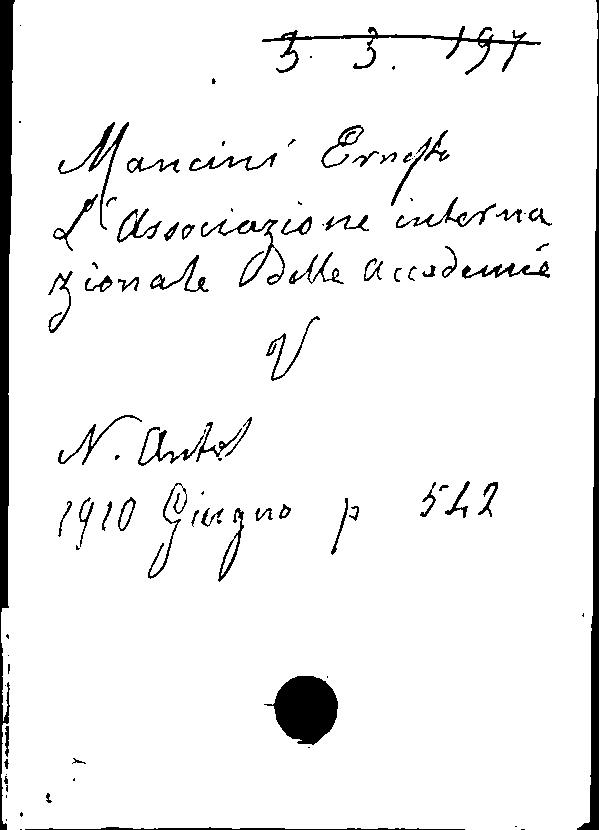 3. 3. 197
Mancini Ernesto
L'Associazione interna
zionale delle Accademie
V
N. Antol
1910 Giugno p 542